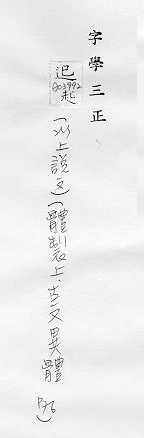 字學三正
起
(以上說文)(體製上.古文異體